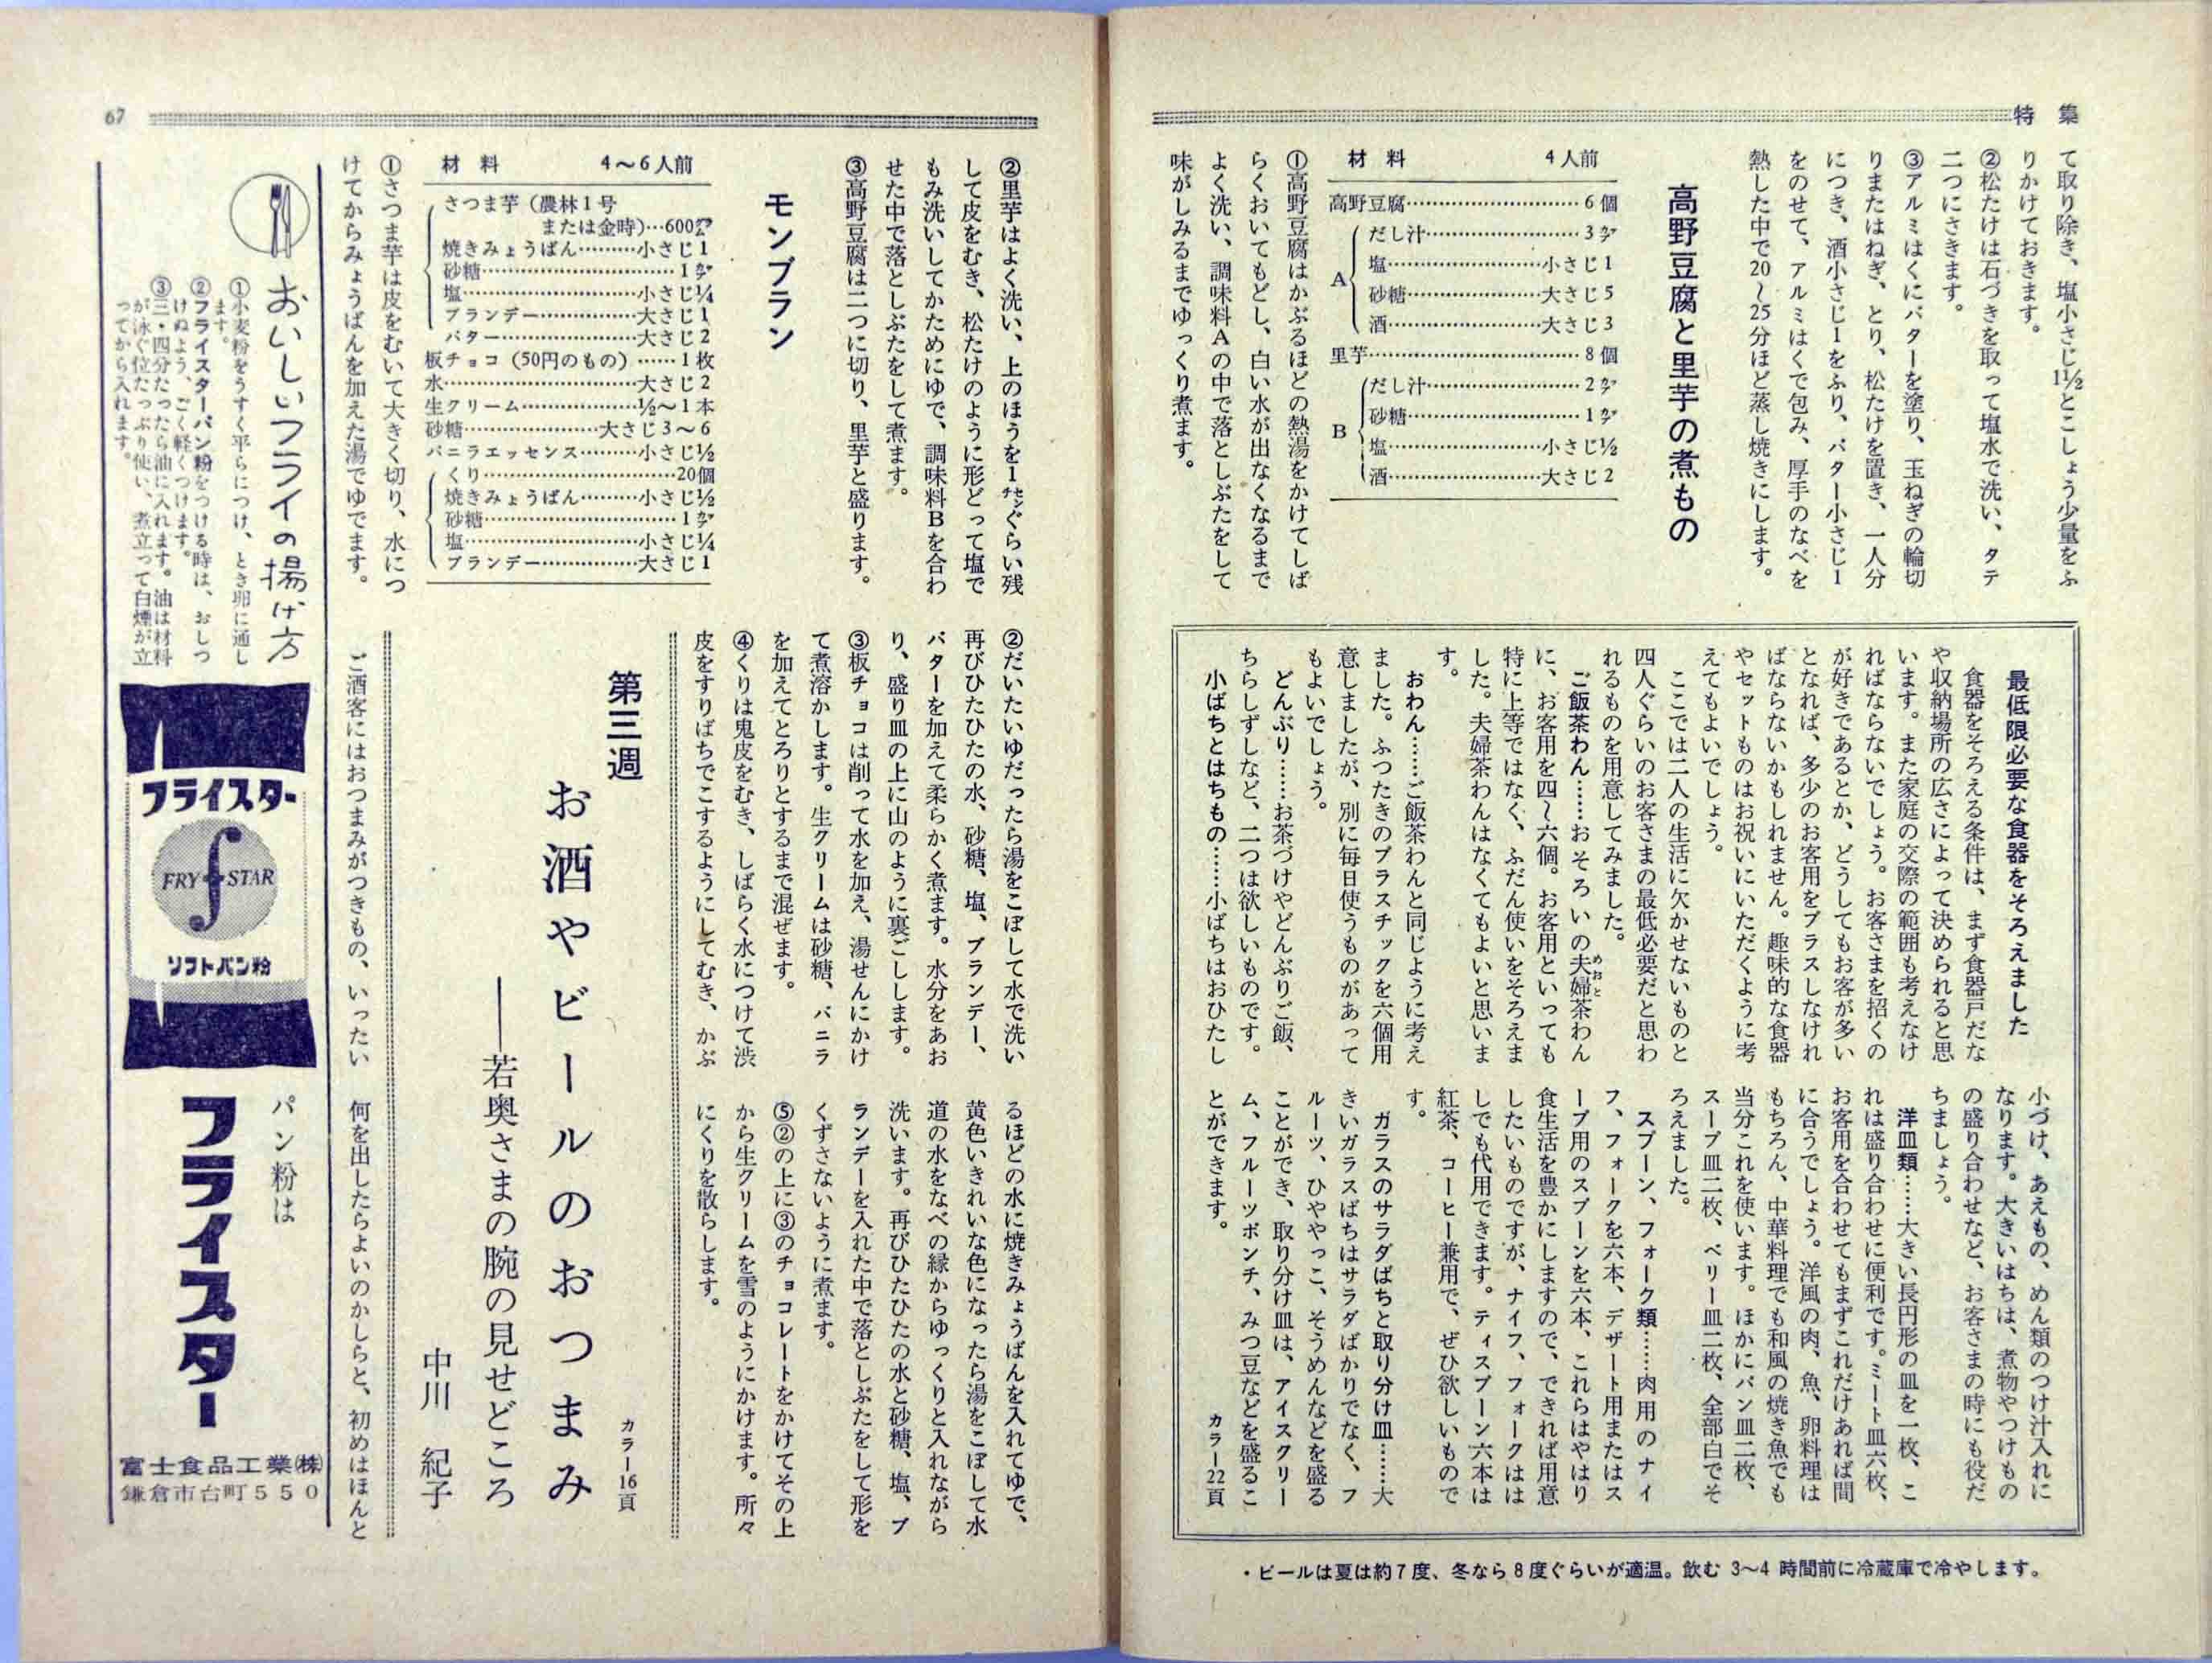 特集
て取り除き、塩小さじ1½とこしょう少量をふ
りかけておきます。
②松たけは石づきを取って塩水で洗い、タテ
二つにさきます。
③アルミはくにバターを塗り、玉ねぎの輪切
りまたはねぎ、とり、松たけを置き、一人分
につき、酒小さじ1をふり、バター小さじ1
をのせて、アルミはくで包み、厚手のなべを
熱した中で20〜25分ほど蒸し焼きにします。
高野豆腐と里芋の煮もの
材料 4人前
高野豆腐……………………6個
A
だし汁…………………3㌍
塩………………小さじ1
砂糖……………大さじ5
酒………………大さじ3
里芋…………………………8個
B
だし汁…………………2㌍
砂糖……………………1㌍
塩………………小さじ½
酒………………大さじ2
①高野豆腐はかぶるほどの熱湯をかけてしば
らくおいてもどし、白い水が出なくなるまで
よく洗い、調味料Aの中で落としぶたをして
味がしみるまでゆっくり煮ます。
最低限必要な食器をそろえました
食器をそろえる条件は、まず食器戸だな
や収納場所の広さによって決められると思
います。また家庭の交際の範囲も考えなけ
ればならないでしょう。お客さまを招くの
が好きであるとか、どうしてもお客が多い
となれば、多少のお客用をプラスしなけれ
ばならないかもしれません。趣味的な食器
やセットものはお祝いにいただくように考
えてもよいでしょう。
ここでは二人の生活に欠かせないものと
四人ぐらいのお客さまの最低必要だと思わ
れるものを用意してみました。
ご飯茶わん……おそろいの夫婦茶わん
めおと
に、お客用を四〜六個。お客用といっても
特に上等ではなく、ふだん使いをそろえま
した。夫婦茶わんはなくてもよいと思いま
す。
おわん……ご飯茶わんと同じように考え
ました。ふつたきのプラスチックを六個用
意しましたが、別に毎日使うものがあって
もよいでしょう。
どんぶり……お茶づけやどんぶりご飯、
ちらしずしなど、二つは欲しいものです。
小ばちとはちもの……小ばちはおひたし
小づけ、あえもの、めん類のつけ汁入れに
なります。大きいはちは、煮物やつけもの
の盛り合わせなど、お客さまの時にも役だ
ちましょう。
洋皿類……大きい長円形の皿を一枚、こ
れは盛り合わせに便利です。ミート皿六枚、
お客用を合わせてもまずこれだけあれば間
に合うでしょう。洋風の肉、魚、卵料理は
もちろん、中華料理でも和風の焼き魚でも
当分これを使います。ほかにパン皿二枚、
スープ皿二枚、ベリー皿二枚、全部白でそ
ろえました。
スプーン、フォーク類……肉用のナイ
フ、フォークを六本、デザート用またはス
ープ用のスプーンを六本、これらはやはり
食生活を豊かにしますので、できれば用意
したいものですが、ナイフ、フォークはは
しでも代用できます。ティスプーン六本は
紅茶、コーヒー兼用で、ぜひ欲しいもので
す。
ガラスのサラダばちと取り分け皿……大
きいガラスばちはサラダばかりでなく、フ
ルーツ、ひややっこ、そうめんなどを盛る
ことができ、取り分け皿は、アイスクリー
ム、フルーツポンチ、みつ豆などを盛るこ
とができます。
カラー22頁
・ビールは夏は約7度、冬なら8度ぐらいが適温。飲む 3〜4 時間前に冷蔵庫で冷やします。
67
②里芋はよく洗い、上のほうを1㌢ぐらい残
して皮をむき、松たけのように形どって塩で
もみ洗いしてかためにゆで、調味料Bを合わ
せた中で落としぶたをして煮ます。
③高野豆腐は二つに切り、里芋と盛ります。
モンブラン
材料 4〜6人前
さつま芋（農林1号
または金時）…600㌘
焼きみょうばん………小さじ1
砂糖……………………1㌍
塩…………………小さじ¼
ブランデー…………大さじ1
バター………………大さじ2
板チョコ（50円のもの）……1枚
水……………………大さじ2
生クリーム……………½〜1本
砂糖………………大さじ3〜6
バニラエッセンス………小さじ½
くり……………………20個
焼きみょうばん………小さじ½
砂糖……………………1㌍
塩…………………小さじ¼
ブランデー…………大さじ1
①さつま芋は皮をむいて大きく切り、水につ
けてからみょうばんを加えた湯でゆでます。
②だいたいゆだったら湯をこぼして水で洗い
再びひたひたの水、砂糖、塩、ブランデー、
バターを加えて柔らかく煮ます。水分をあお
り、盛り皿の上に山のように裏ごしします。
③板チョコは削って水を加え、湯せんにかけ
て煮溶かします。生クリームは砂糖、バニラ
を加えてとろりとするまで混ぜます。
④くりは鬼皮をむき、しばらく水につけて渋
皮をすりばちでこするようにしてむき、かぶ
るほどの水に焼きみょうばんを入れてゆで、
黄色いきれいな色になったら湯をこぼして水
道の水をなべの縁からゆっくりと入れながら
洗います。再びひたひたの水と砂糖、塩、ブ
ランデーを入れた中で落としぶたをして形を
くずさないように煮ます。
⑤②の上に③のチョコレートをかけてその上
から生クリームを雪のようにかけます。所々
にくりを散らします。
第三週
お酒やビールのおつまみ
カラー16頁
――若奥さまの腕の見せどころ
中川 紀子
ご酒客にはおつまみがつきもの、いったい
何を出したらよいのかしらと、初めはほんと
おいしいフライの揚げ方
①小麦粉をうすく平らにつけ、とき卵に通し
ます。
②フライスターパン粉をつける時は、おしつ
けぬよう、ごく軽くつけます。
③三・四分たったら油に入れます。油は材料
が泳ぐ位たっぷり使い、煮立って白煙が立
ってから入れます。
フライスター
FRY STAR
ソフトパン粉
パン粉は
フライスター
富士食品工業㈱
鎌倉市台町550